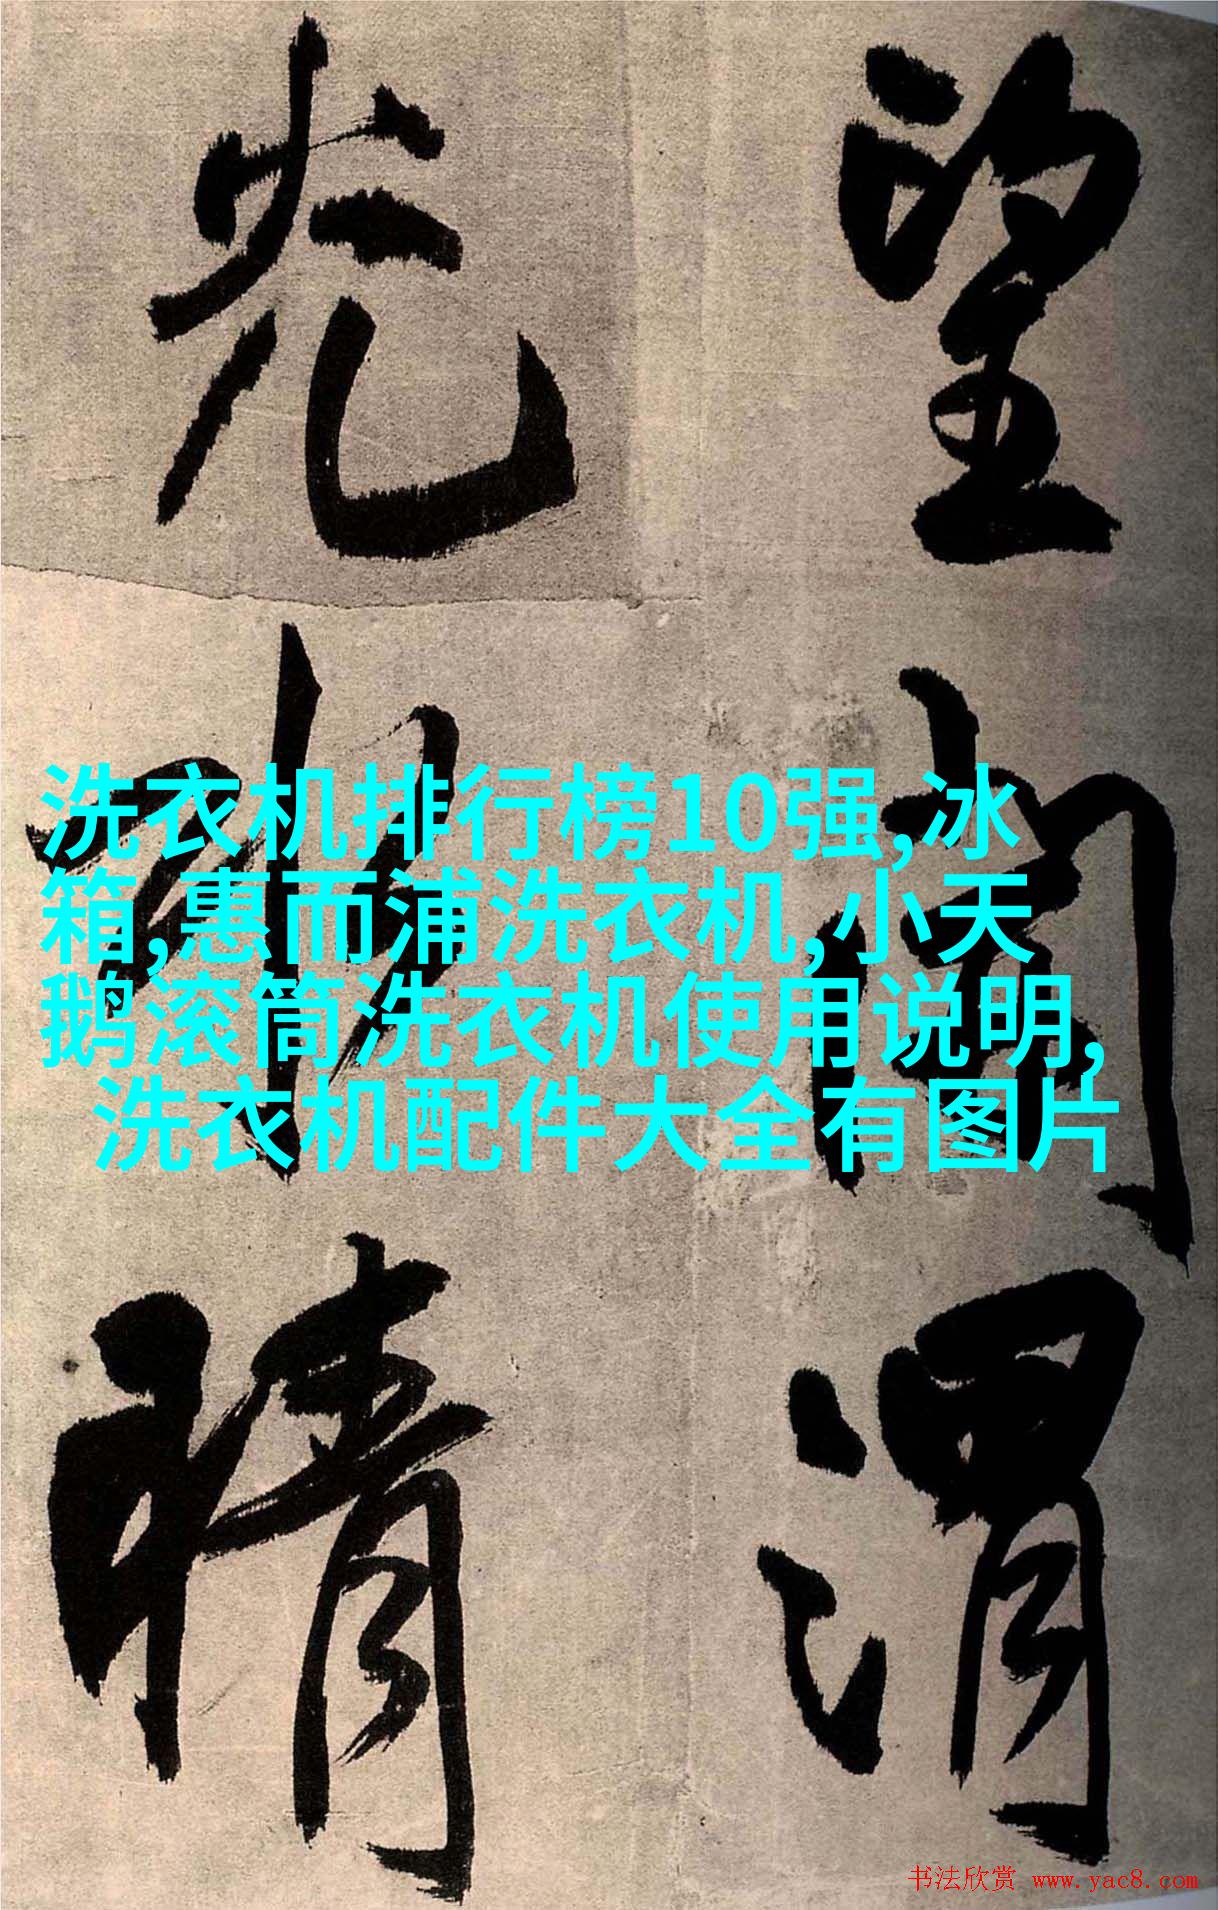 望
渭
光
晴
洗衣机排行榜10强,冰
箱,惠而浦洗衣机,小天
鹅滚筒洗衣机使用说明,
洗衣机配件大全有图片
书法欣赏 www.yac8.com